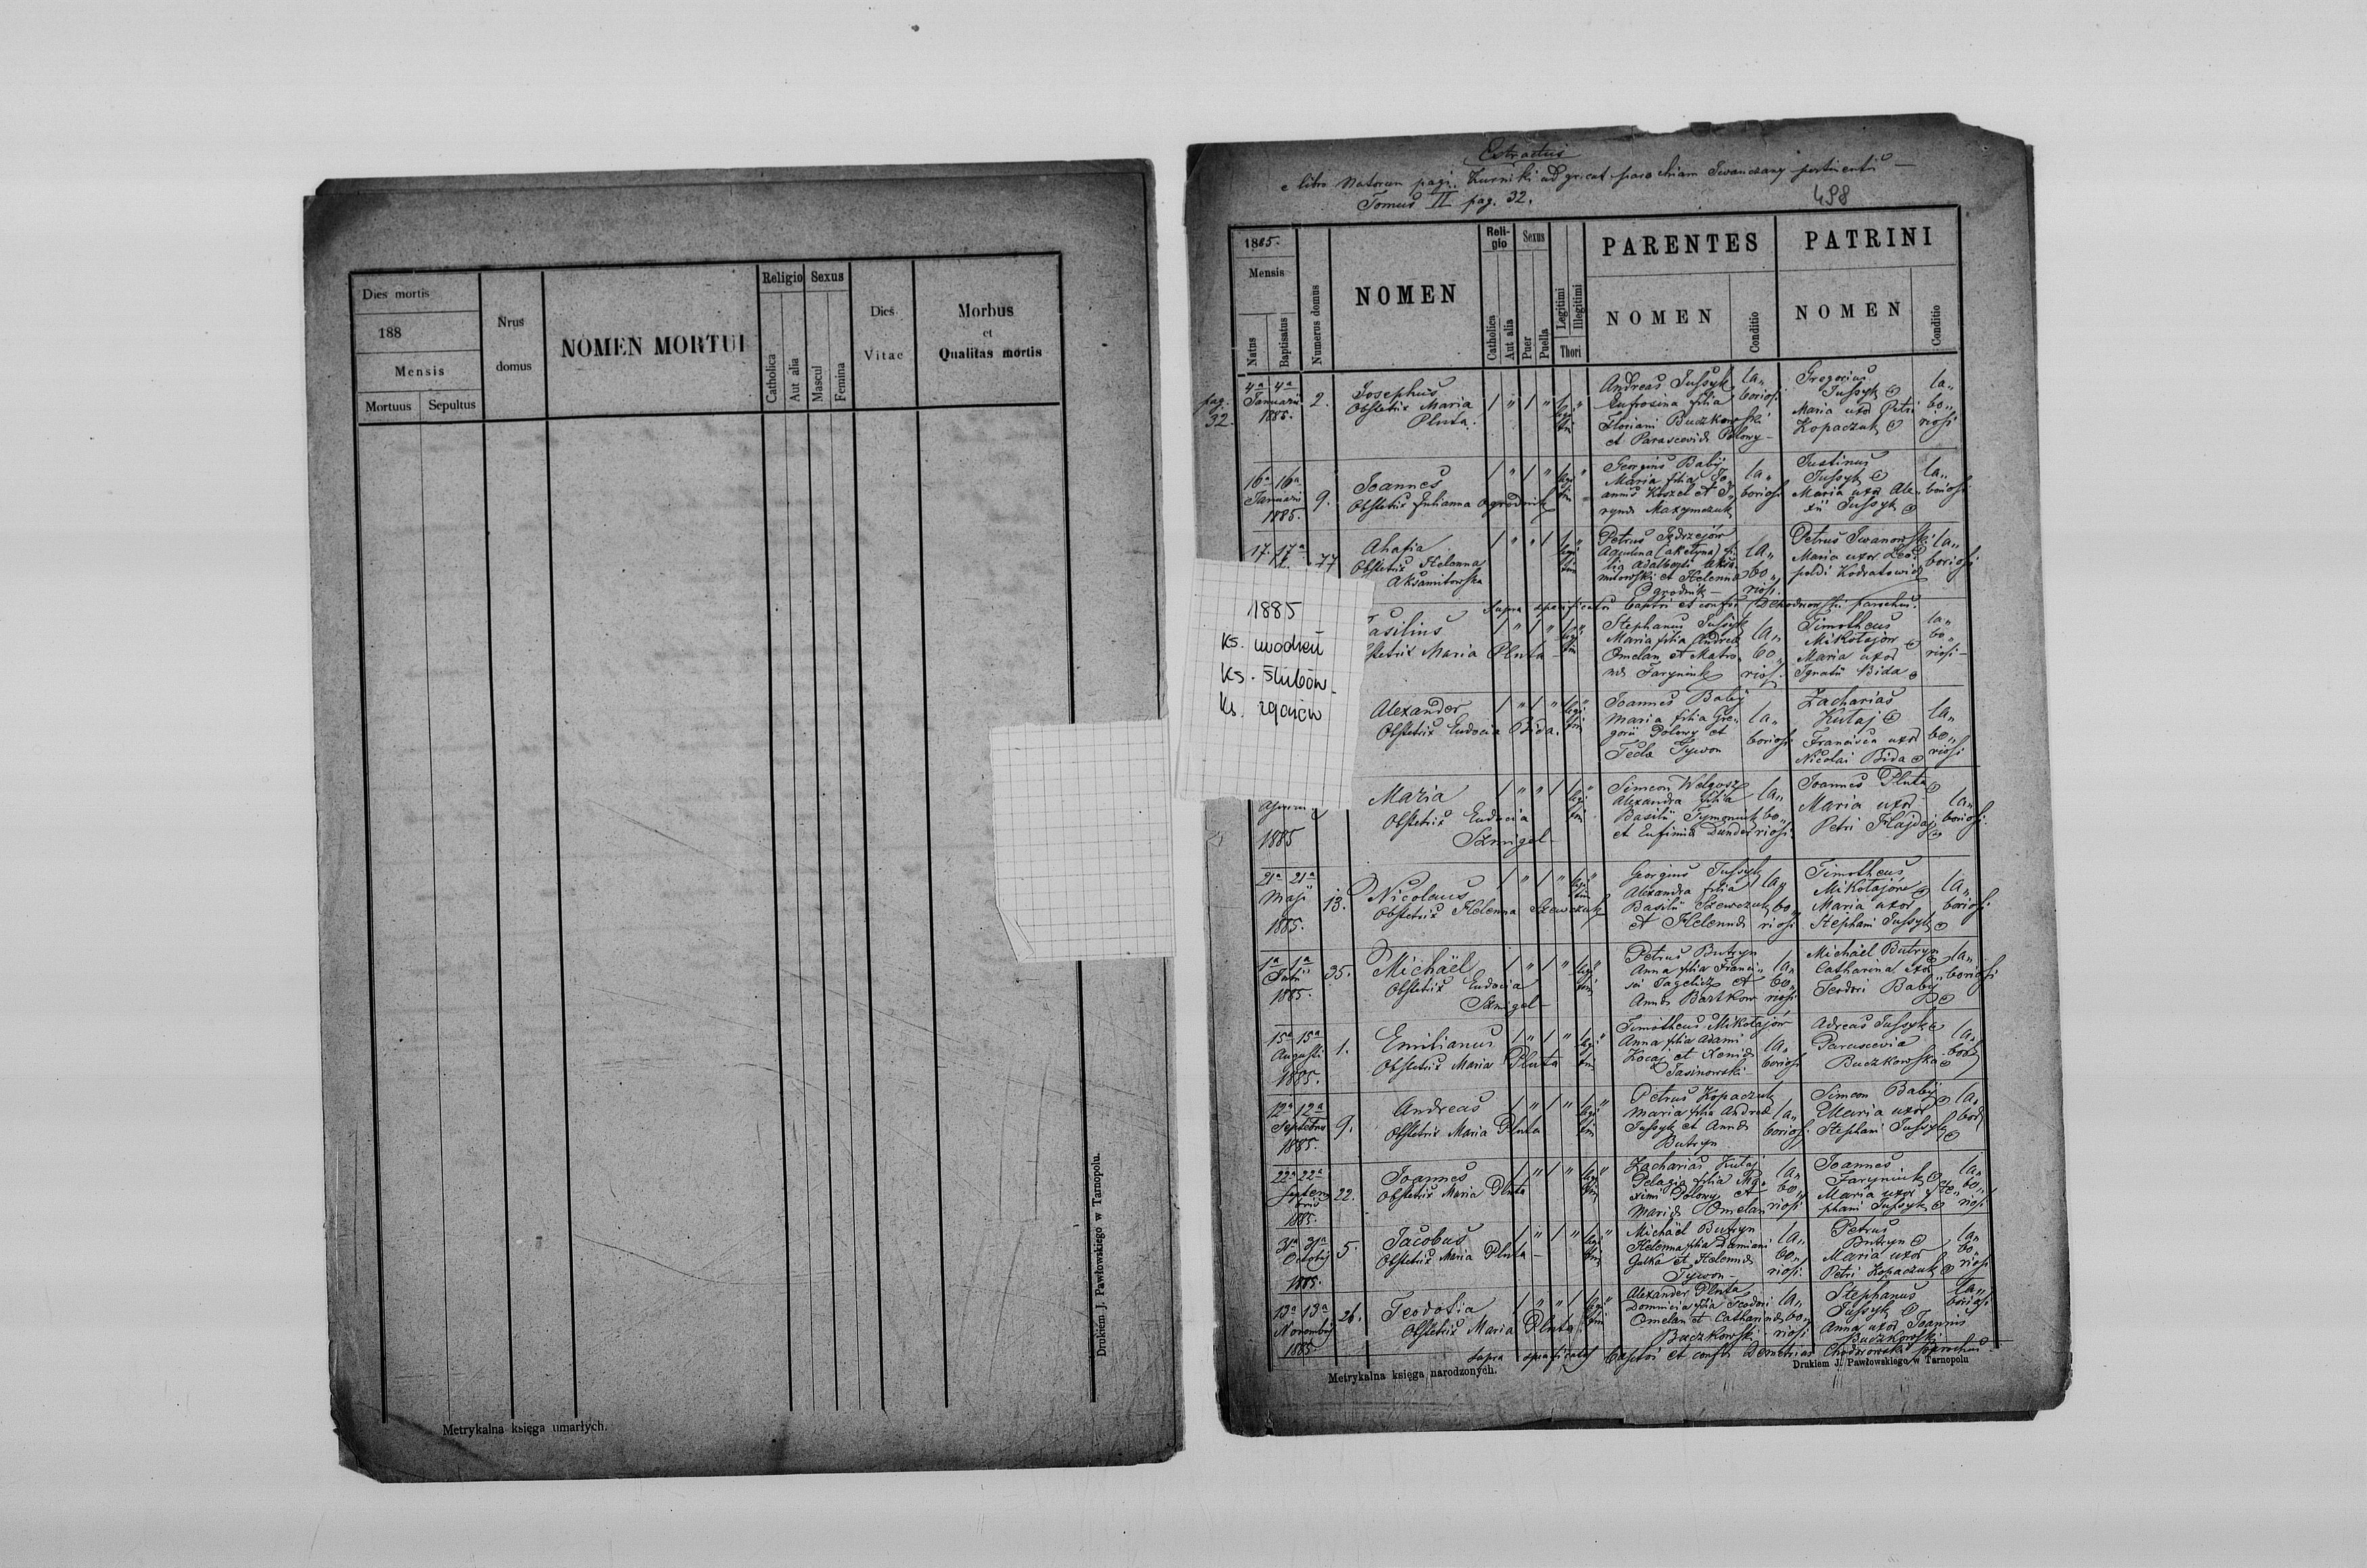 Dies mortis
188
Mensis
Mortuus Sepultus
Nrus
domus
NOMEN MORTUI
Religio Sexus
Catholica
Aut alia
Mascul
Femina
Dies
Vitae
Morbus
et
Qualitas mortis
Metrykalna księga umarłych.
Drukiem J. Pawłowskiego w Tarnopolu.
1885
Ks. zgonów
Extractus
e libro Natorum pagi Kurniki ad gr. cat. parochiam Iwanczany
Tomus II pag. 32.
498
1885.
Mensis
Natus
Baptisatus
Numerus domus
NOMEN
Reli-
gio
Sexus
Catholica
Aut alia
Puer
Puella
Legitimi
Illegitimi
Thori
PARENTES
NOMEN
Conditio
PATRINI
NOMEN
Conditio
pag.
32.
4a 4a
Januarii
1885.
2.
Josephus
Obstetrix Maria
Pluta.
Andreas Jussyk
Eufrosina filia
Floriani Buczkowski
et Parascevia Polowy
la„
boriosi
Gregorius
Jussyk
Maria uxor Petri
Kopaczuk
la„
bo„
riosi
16a 16a
Januarii
1885.
9.
Joannes
Obstetrix Julianna Ogrodnik
Georgius Babij
Maria filia Jo„
la„
boriosi
Justinus
Jussyk
Maria uxor Ale„
xii Jussyk
la„
boriosi
17. 17a
77
Ahafia
Obstetrix Helenna
Aksamitowska
Petrus Jędrzejów
mitowski et Helenna
Ogrodnik
la„
bo„
riosi
Petrus Iwanowski
Maria uxor Leo„
poldi
la„
boriosi
asilius
stetrix Maria Pluta
Stephanus Jussyk
Maria filia Andreae
Omelan et Matro„
la„
bo„
riosi
Timotheus
Mikołajów
Maria uxor
Ignatii Bida
la„
bo„
riosi
Alexander
Obstetrix Eudocia Bida.
Joannes Babij
Maria filia Gre„
gorii Polowy et
Tecla Tywon
la„
boriosi
Zacharias
Kutaj
Francisca uxor
Nicolai Bida
la„
bo„
riosi
1885
Maria
Obstetrix Eudocia
Szmigel
Simeon Welgosz
Alexandra filia
Basilii Tymoniuk
et Eufimia Dunder
la„
bo„
riosi
Joannes Pluta
Maria uxor
Petri Hajdaj
la„
boriosi
21a 21a
Maji
1885.
13.
Nicolaus
Obstetrix Helenna Szewczuk
Georgius Jussyk
Alexandra filia
Basilii Szewczuk
et Helenna
la„
bo„
riosi
Timotheus
Mikołajów
Maria uxor
Stephani Jussyk
la„
boriosi
1a 1a
1885.
35.
Michaël
Obstetrix Eudocia
Szmigel
Petrus Butryn
Anna filia Franci„
Anna Bartkow
la„
bo„
riosi
Michaël Butryn
Catharina uxor
Teodori Babij
la„
boriosi
15a 15a
Augusti
1885.
1.
Emilianus
Obstetrix Maria Pluta
Timotheus Mikołajów
Anna filia Adami
Kocaj et Xenia
Jasinowski
la„
boriosi
Adreas Jussyk
Parascevia
Buczkowska
la„
12a 12a
Septembris
1885.
9.
Andreas
Obstetrix Maria Pluta
Petrus Kopaczuk
Maria filia Andreae
Jussyk et Anna
Butryn
la„
boriosi
Simeon Babij
Maria uxor
Stephani Jussyk
la„
22a 22a
Septem
bris
1885.
22.
Joannes
Obstetrix Maria Pluta
Zacharias Kutaj
Pelagia filia Ma„
ximi Polowy et
Maria Omelan
la„
bo„
riosi
Joannes
Faryniuk
Maria uxor Ste„
phani Jussyk
la„
bo„
riosi
31a 31a
Octobris
1885.
5.
Jacobus
Obstetrix Maria Pluta
Michaël Butryn
Helenna filia Damiani
Galka et Helenna
Tywon
la„
bo„
riosi
Petrus
Butryn
Maria uxor
Petri Kopaczuk
la„
bo„
riosi
13a 13a
Novembris
1885.
26.
Teodosia
Obstetrix Maria Pluta
Alexander Pluta
Domnicia filia Teodori
Omelan et Catharina
Buczkowski
la„
bo„
riosi
Stephanus
Jussyk
Anna uxor Joannis
Buczkowski
la„
boriosi
Metrykalna księga narodzonych.
Drukiem J. Pawłowskiego w Tarnopolu